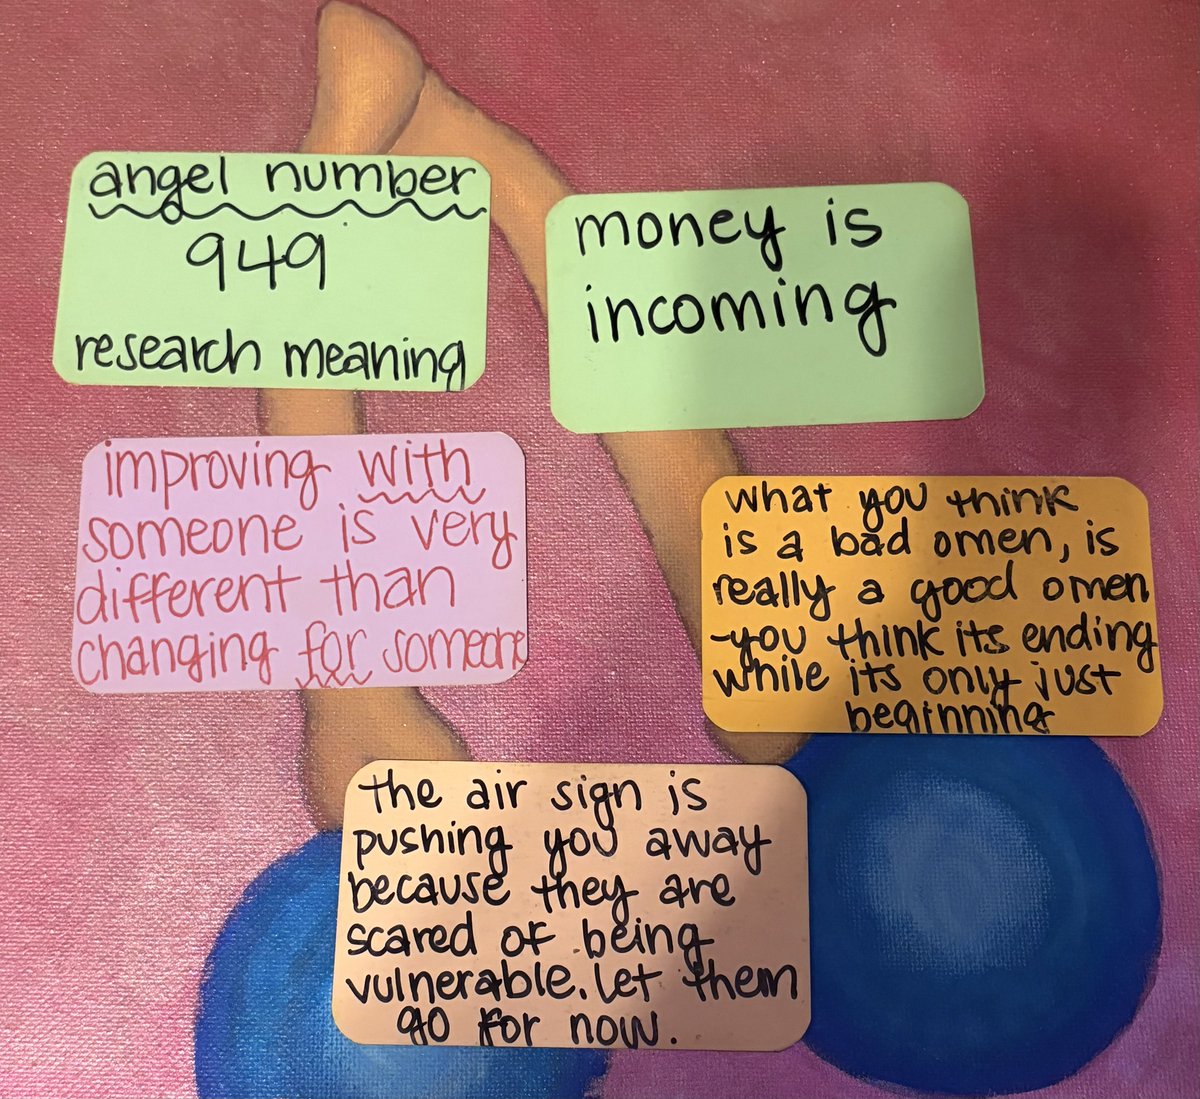 angel number
949
research meaning
money is
incoming
improving with
someone is very
different than
changing for someone
what you think
is a bad omen, is
really a good omen
-you think its ending
while its only just
beginning
the air sign is
pushing you away
because they are
scared of being
vulnerable. let them
go for now.